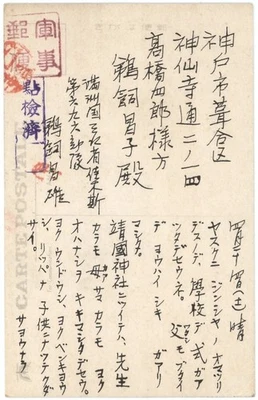 軍事
郵便
點檢濟
CARTE POSTALE
神戸市葺合区
神仙寺通二ノ一四
髙橋四郎様方
鵜飼昌子殿
満洲国三江省佳木斯
第六九六部隊
鵜飼昌雄
四月十四日(土)晴
ヤスクニ ジンジャノ オマツリ
デスノデ、學校デ 式ガア
ツタデセウネ。父サンモ ブタイ
デ ヨウハイ シキ ガアリ
マシタ。
靖國神社ニツイテハ、先生
カラモ 母サマ カラモ ヨク
オハナシヲ キキマシタデセウ。
ヨク ウンドウシ、ヨク ベンキョウ
シ、リッパナ 子供ニナツテクダ
サイ。 サヨウナラ